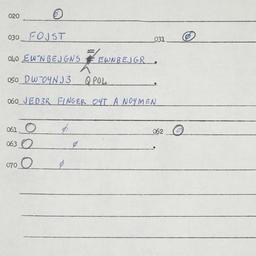 020 Ø
030 FOJST 031 Ø
040 EWNBEJGNS # EWNBEJGR.
050 DW04NJ3 QPOL.
060 JED3R FINGER OYT A NOYMEN
061 O Ø 062 Ø
063 O Ø .
070 O Ø